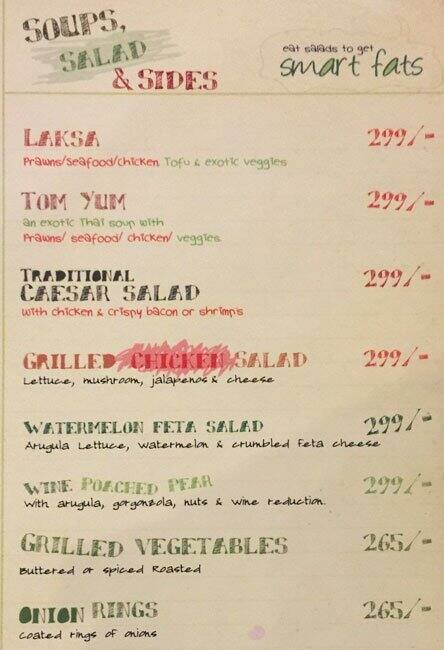 SOUPS,
SALAD
& SIDES
eat salads to get
smart fats
LAKSA 299/-
Prawns/seafood/chicken Tofu & exotic veggies
TOM YUM 299/-
an exotic Thai soup with
Prawns/ seafood/ chicken/ veggies
TRADITIONAL
CAESAR SALAD 299/-
with chicken & crispy bacon or shrimps
GRILLED CHICKEN SALAD 299/-
Lettuce, mushroom, jalapenos & cheese
WATERMELON FETA SALAD 299/-
Arugula Lettuce, watermelon & crumbled feta cheese
WINE POACHED PEAR 299/-
with arugula, gorgonzola, nuts & wine reduction.
GRILLED VEGETABLES 265/-
Buttered or spiced Roasted
ONION RINGS 265/-
Coated rings of onions